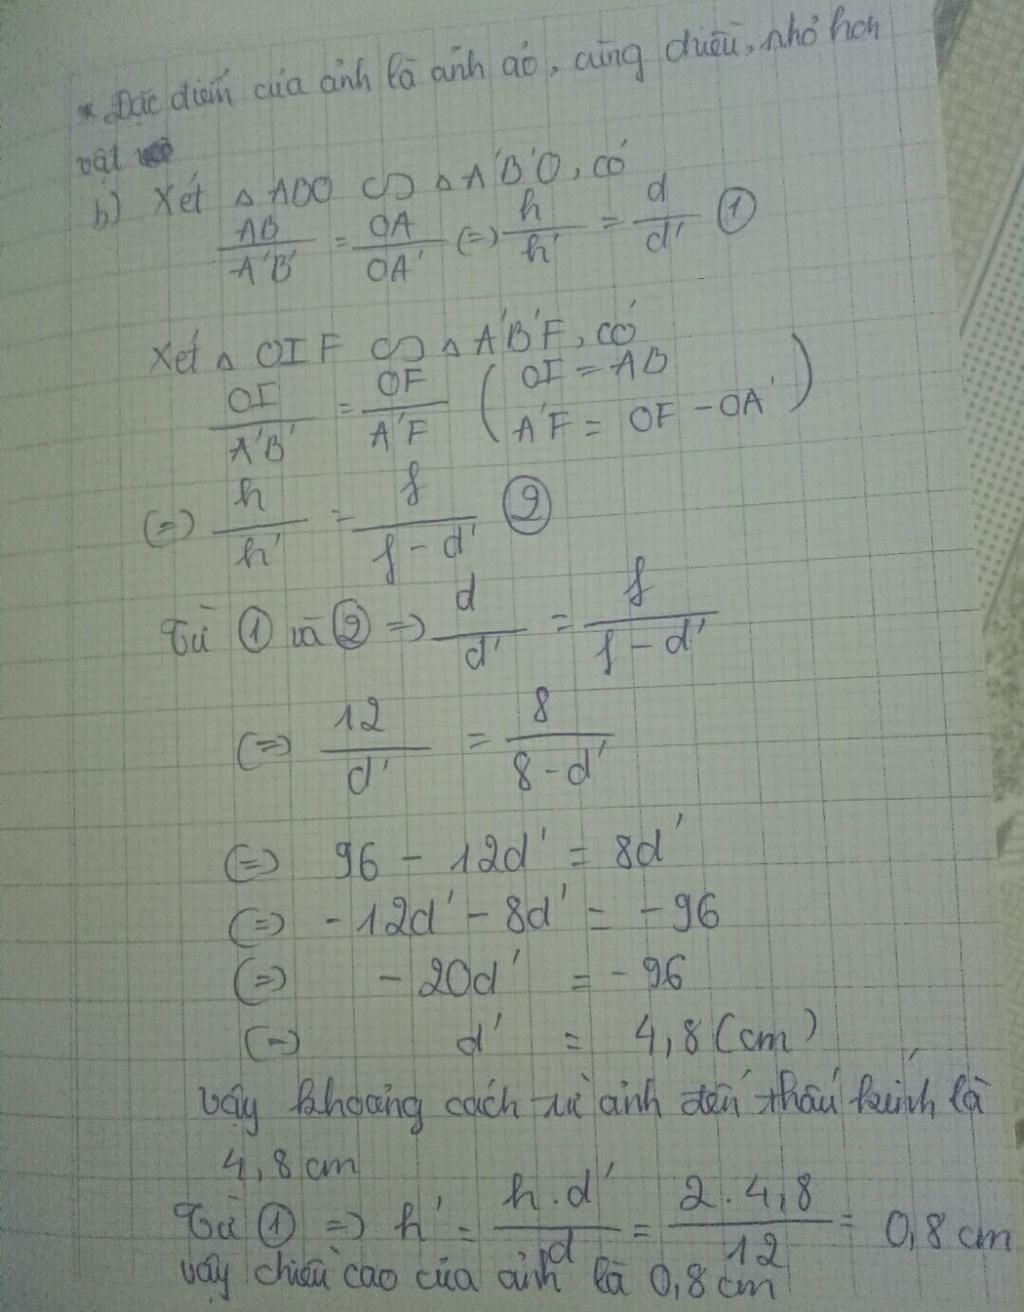 * Đặc điểm của ảnh là ảnh ảo, cùng chiều, nhỏ hơn
vật
b) Xét △ ABO ∽ △ A'B'O, có
AB/A'B' = OA/OA' (=) h/h' = d/d' ①
Xét △ OIF ∽ △ A'B'F, có
OI/A'B' = OF/A'F ( OI = AB
A'F = OF - OA' )
(=) h/h' = f/f - d' ②
Từ ① và ② => d/d' = f/f - d'
(=) 12/d' = 8/8 - d'
(=) 96 - 12d' = 8d'
(=) - 12d' - 8d' = - 96
(=) - 20d' = - 96
(=) d' = 4,8 (cm)
vậy khoảng cách từ ảnh đến thấu kính là
4,8 cm
Từ ① => h' = h . d'/d = 2 . 4,8/12 = 0,8 cm
vậy chiều cao của ảnh là 0,8 cm